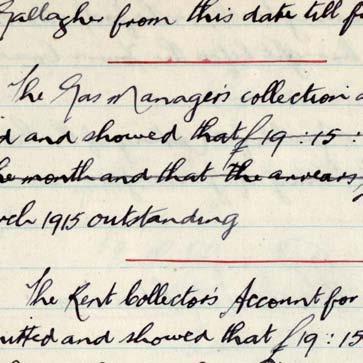 Gallagher from this date till f
The Gas Manager's collection a
d and showed that £19 : 15 :
he month and that the arrears
rch 1915 outstanding
The Rent Collector's Account for
mitted and showed that £19 : 15